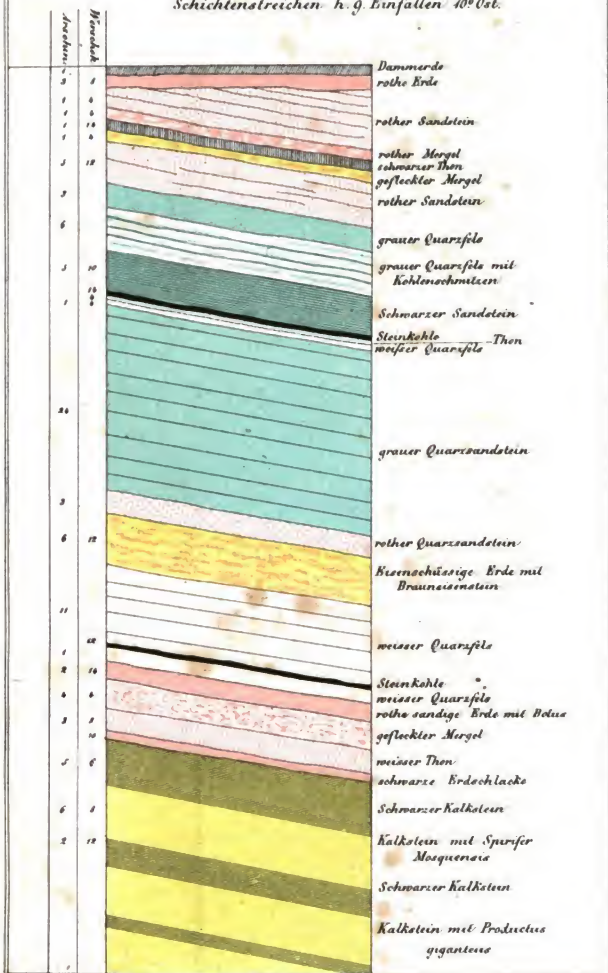 Schichtenstreichen h. 9. Einfallen 40° Ost.
Arschin. Werschok
Dammerde
rothe Erde
rother Sandstein
rother Mergel
schwarzer Thon
gefleckter Mergel
rother Sandstein
grauer Quarzfels
grauer Quarzfels mit
Kohlenschmitzen
Schwarzer Sandstein
Steinkohle Thon
weißer Quarzfels
grauer Quarzsandstein
rother Quarzsandstein
Eisenschüssige Erde mit
Brauneisenstein
weisser Quarzfels
Steinkohle
weisser Quarzfels
rothe sandige Erde mit Bolus
gefleckter Mergel
weisser Thon
schwarze Erdschlacke
Schwarzer Kalkstein
Kalkstein mit Spirifer
Mosquensis
Schwarzer Kalkstein
Kalkstein mit Productus
giganteus